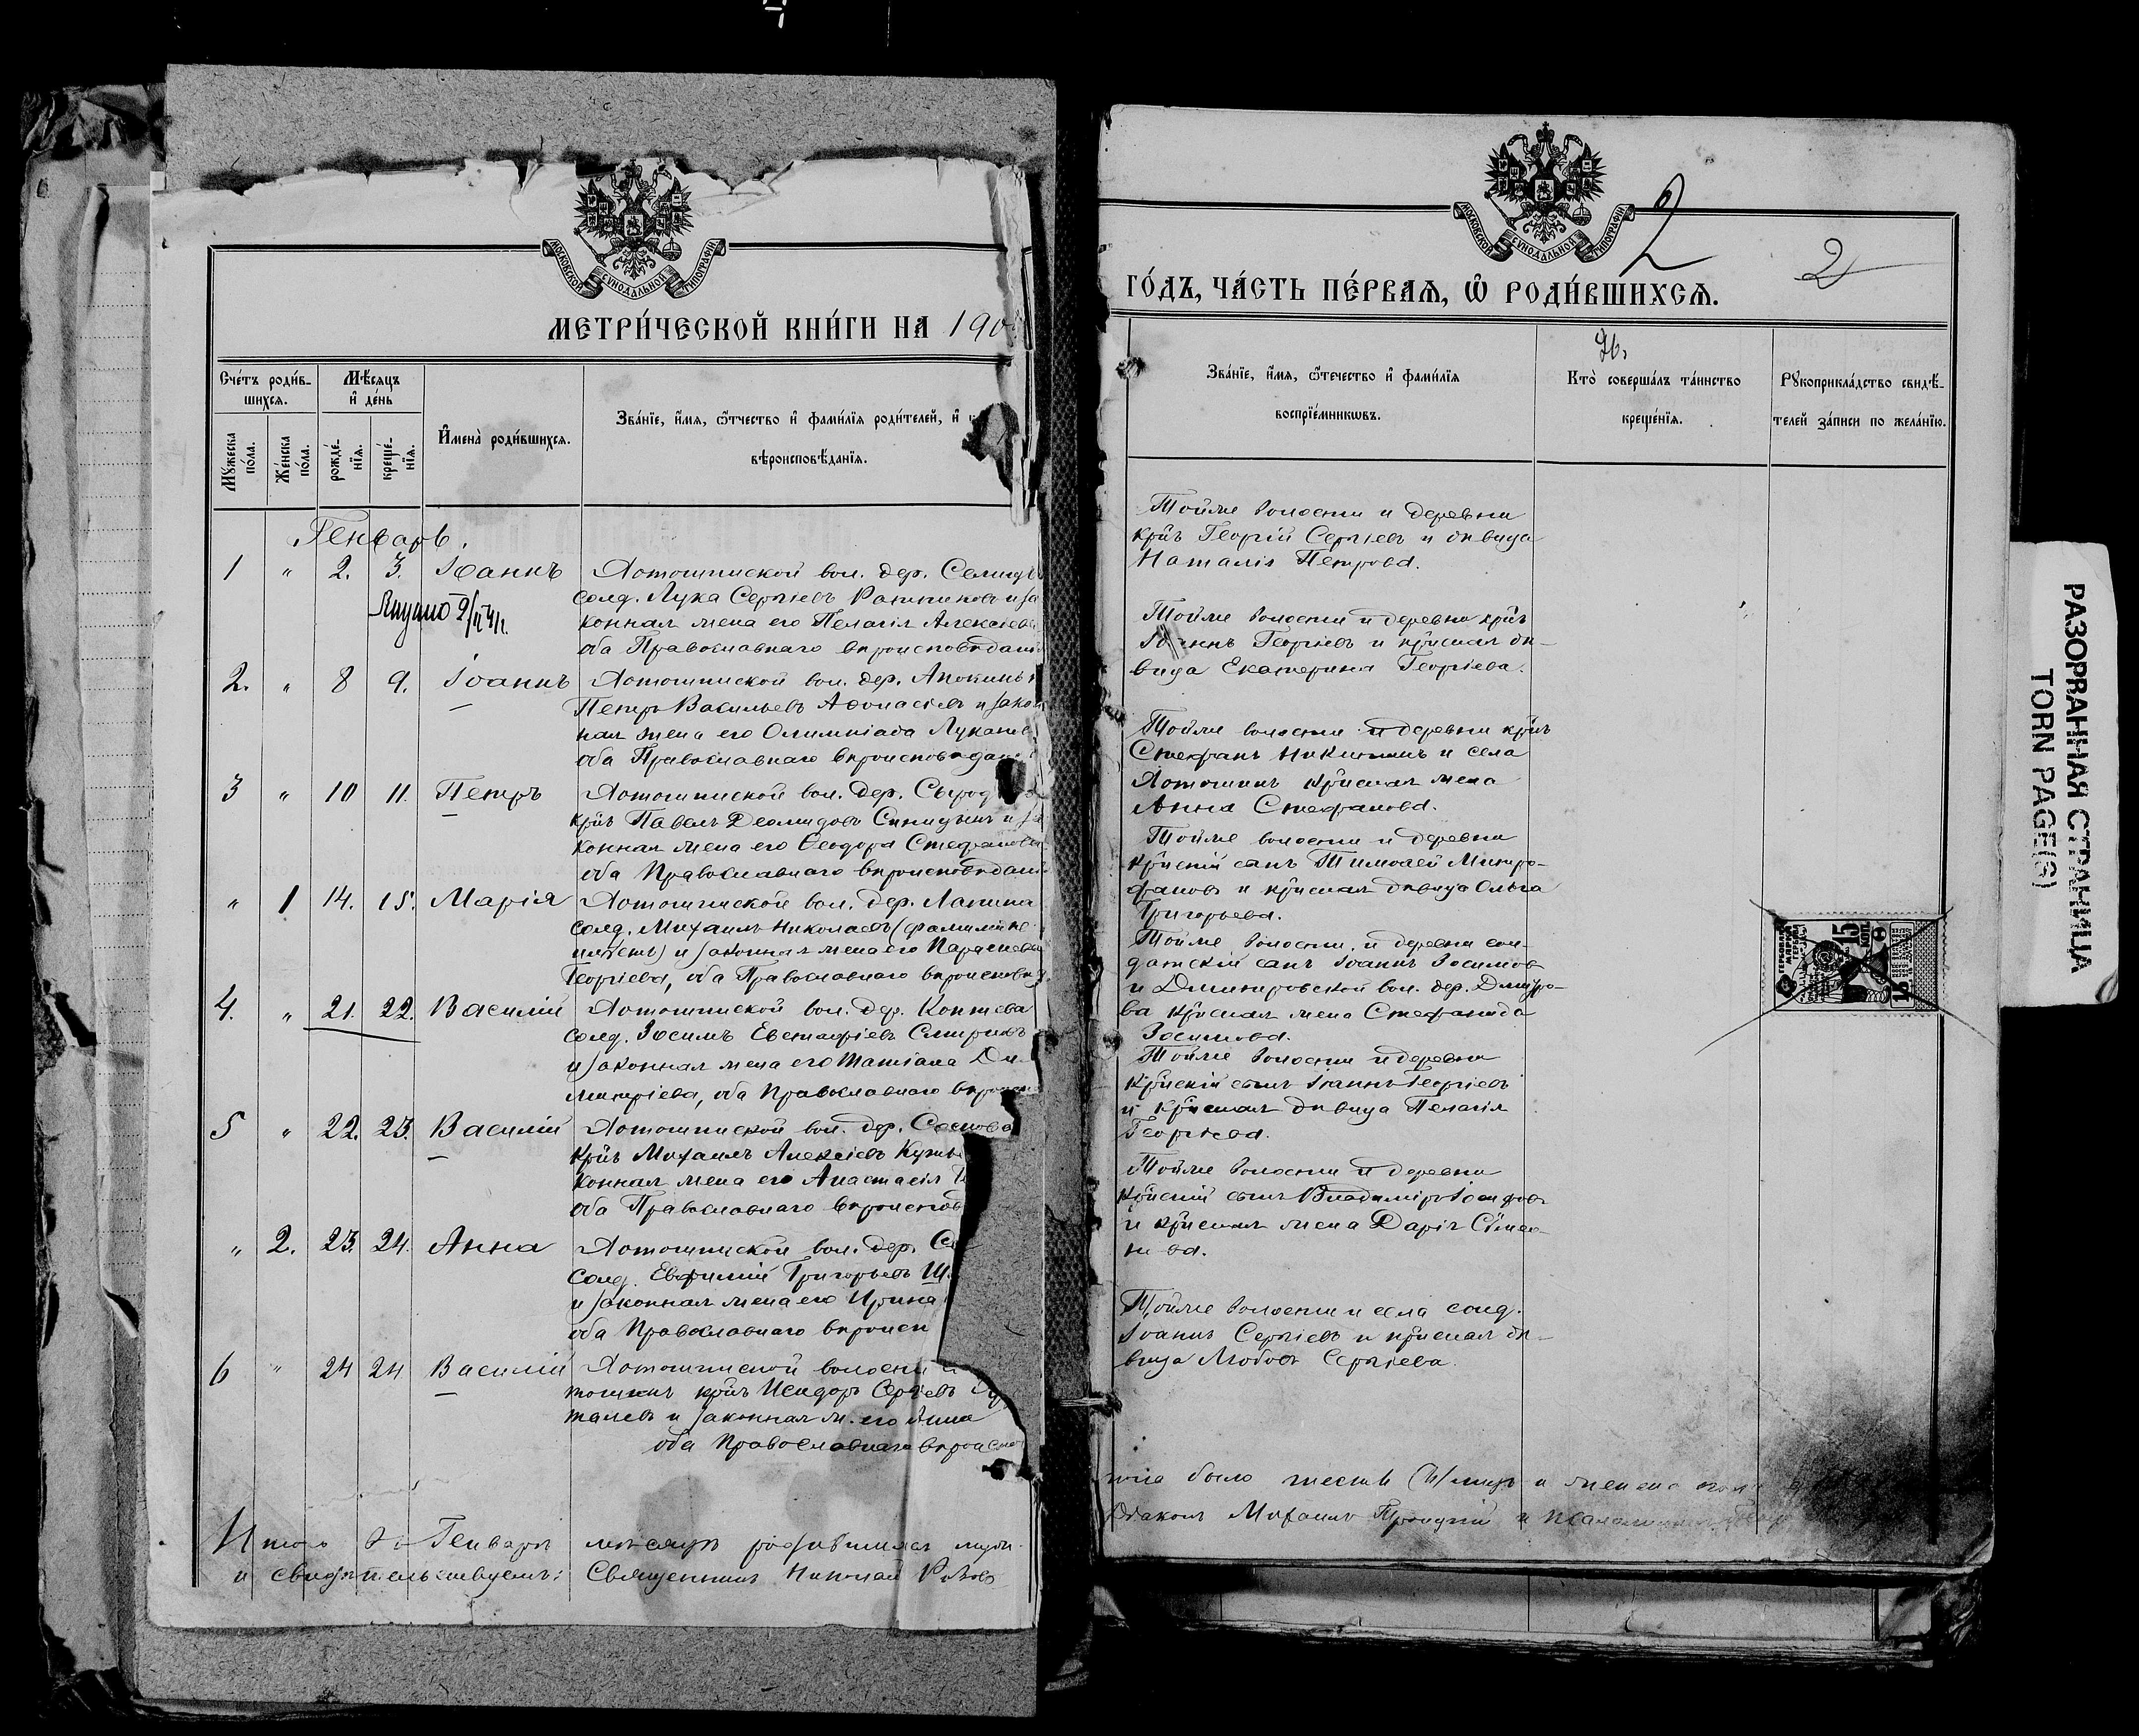 МОСКОВСКОЙ СУНОДАЛЬНОЙ ТИПОГРАФІИ
МЕТРИ́ЧЕСКОЙ КНИ́ГИ НА 190
Сче́тъ роди́в-
шихсѧ.
Мѣ́сѧцъ
и҆ де́нь
Мꙋ́жеска
по́ла.
Же́нска
по́ла.
рожде́-
нїѧ.
креще́-
нїѧ.
И҆мена̀ роди́вшихсѧ.
Зва́нїе, и҆́мѧ, ѻ҆́тчество и҆ фами́лїѧ роди́телей, и҆
вѣроисповѣ́данїѧ.
Генварь.
1 " 2. 3. Іоаннъ Лотошинской вол. дер.
солд. Лука Сергіевъ
конная жена его Пелагія Алексіева
оба Православнаго вѣроисповѣдані
2. " 8 9. Іоаннъ Лотошинской вол. дер.
Петръ Васильевъ Аѳонасіевъ и зако
ная жена его Олимпіада
оба Православнаго вѣроисповѣдані
3 " 10 11. Петръ Лотошинской вол. дер.
крнъ Павелъ Деомидовъ Синицынъ и за
конная жена его Ѳеодора Стефанова
оба Православнаго вѣроисповѣдані
" 1 14. 15. Марія Лотошинской вол. дер. Лапина
солд. Михаилъ Николаевъ (фамиліи не
имѣетъ) и законная жена его Параскева
Георгіева, оба Православнаго вѣроисповѣд
4. " 21. 22. Василій Лотошинской вол. дер. Коптева
солд. Зосимъ Евстафіевъ
и законная жена его Татіана Ди-
митріева, оба Православнаго вѣроисп
5 " 22. 23. Василій Лотошинской вол. дер.
крнъ Михаилъ Алексіевъ
конная жена его Анастасія
оба Православнаго вѣроисповѣд
" 2. 23. 24. Анна Лотошинской вол. дер.
солд. Евфимій Григорьевъ
и законная жена его Ирина
оба Православнаго вѣроисп
6 " 24 24 Василій Лотошинской волости
тошинъ крнъ Исидоръ Сергіевъ
и законная ж. его Анна
оба Православнаго вѣроиспо
Итого въ Генварѣ мѣсяцѣ родившихся муж.
и свидѣтельствуемъ: Священникъ Николай
МОСКОВСКОЙ СУНОДАЛЬНОЙ ТИПОГРАФІИ
2
2
ГО́ДЪ, ЧА́СТЬ ПЕ́РВАѦ, Ѡ҆ РОДИ́ВШИХСѦ.
Зва́нїе, и҆́мѧ, ѻ҆те́чество и҆ фами́лїѧ
воспрїе́мникѡвъ.
Кто̀ соверша́лъ та́инство
креще́нїѧ.
Рꙋкоприкла́дство свидѣ́-
телей за́писи по жела́нїю.
Тойже волости и деревни
крнъ Георгій Сергіевъ и дѣвица
Наталія Петрова.
Тойже волости и деревни крнъ
Іоаннъ Георгіевъ и крнская дѣ-
вица Екатерина Георгіева.
Тойже волости и деревни крнъ
Стефанъ Никитинъ и села
Лотошинъ крнская жена
Анна Стефанова.
Тойже волости и деревни
крнскій сынъ Тимоѳей Митро-
фановъ и крнская дѣвица Ольга
Григорьева.
Тойже волости и деревни сол-
датскій сынъ Іоаннъ Зосимовъ
и Дмитровской вол. дер.
ва крнская жена Стефанида
Зосимова.
Тойже волости и деревни
крнскій сынъ Іоаннъ Георгіевъ
и крнская дѣвица Пелагія
Георгіева.
Тойже волости и деревни
крнскій сынъ Владиміръ
и крнская жена Дарія Сѵмео-
нова.
Тойже волости и села солд.
Іоаннъ Сергіевъ и крнская дѣ-
вица Любовь Сергіева.
пола было шесть (6) и женска пола
Діаконъ Михаилъ Троицкій и
15 КОП.
РАЗОРВАННАЯ СТРАНИЦА
TORN PAGE(S)